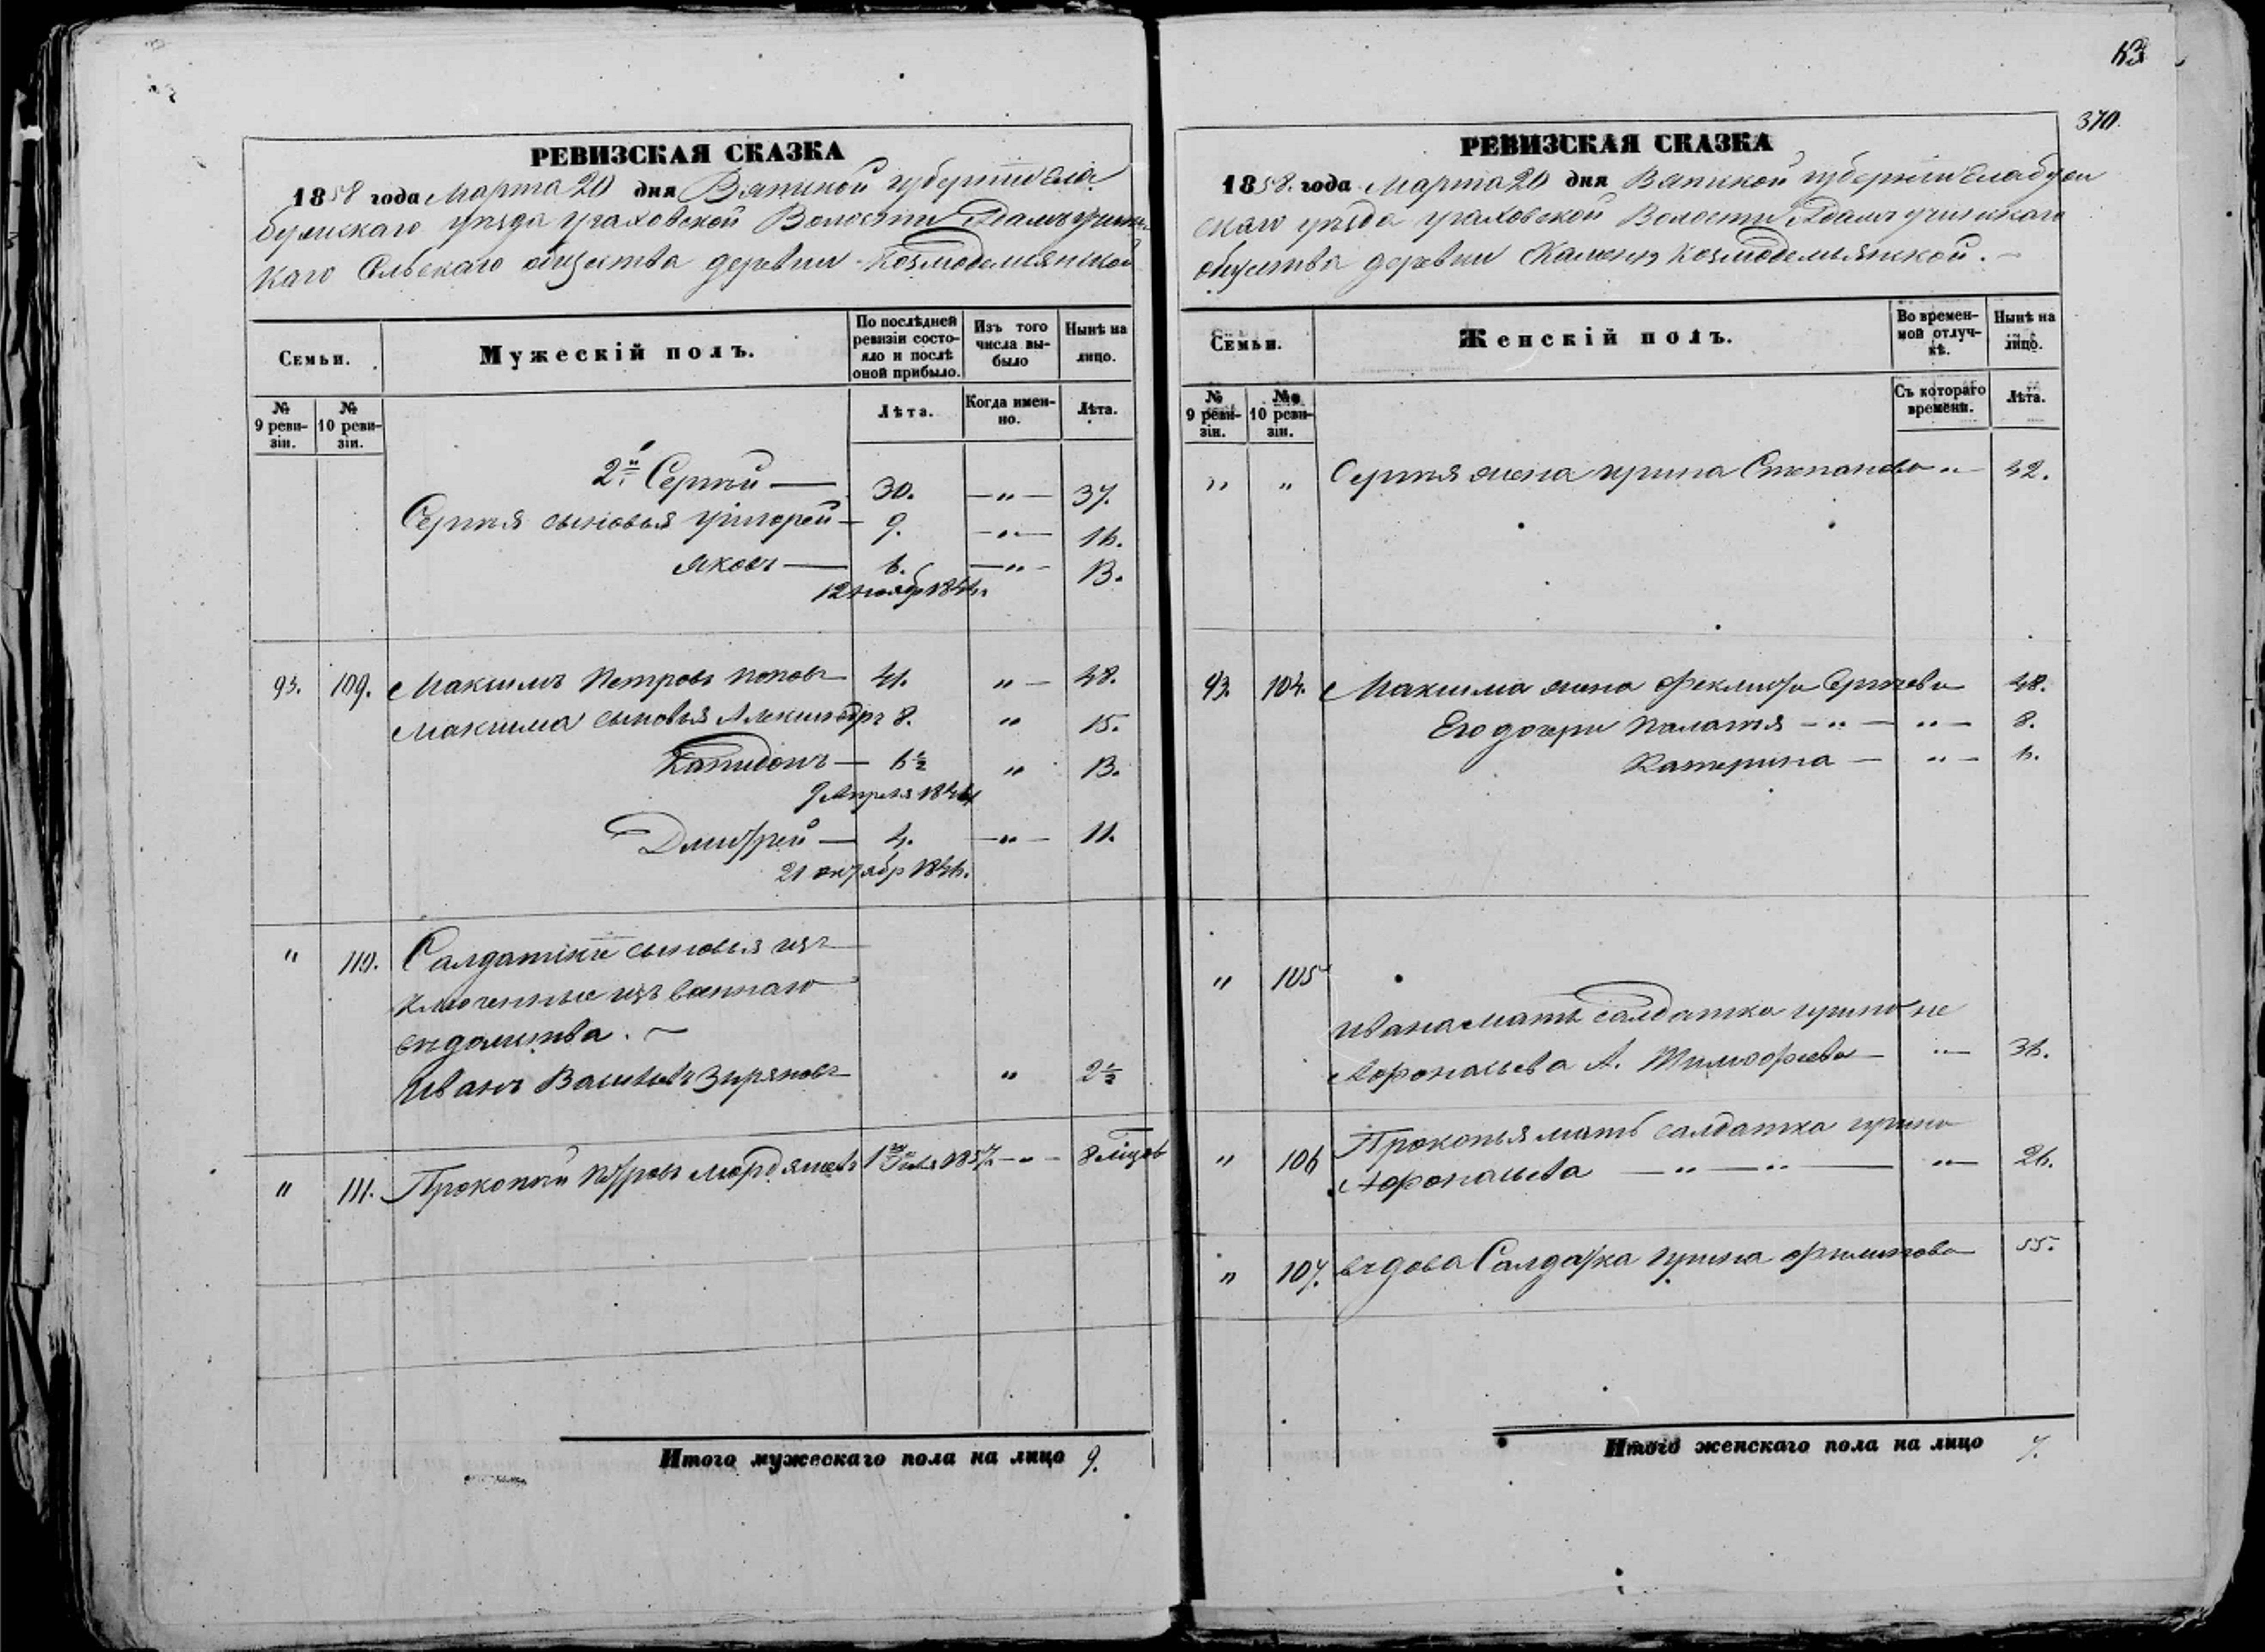 РЕВИЗСКАЯ СКАЗКА
1858 года Марта 20 дня Вятской губернии Ела
бужскаго уѣзда Граховской Волости
каго Сельскаго общества деревни Козмодемьянской
Семьи.
Мужескій полъ.
По послѣдней ревизіи состояло и послѣ оной прибыло.
Изъ того числа выбыло
Нынѣ на лицо.
№ 9 ревизіи.
№ 10 ревизіи.
Лѣта.
Когда именно.
Лѣта.
2й Сергѣй — 30. —„— 37.
Сергѣя сыновья Григорей — 9. —„— 16.
Яковъ — 6. —„— 13.
12 ноябр
93. 109. Максимъ Петровъ Поповъ 41. „ — 48.
Максима сыновья Александръ 8. „ 15.
Капидонъ — 6½ „ 13.
9 Апреля
Дмитрей — 4. —„— 11.
21 октябр 1846.
„ 110. Салдатскіе сыновья из
ключенные изъ военнаго
вѣдомства. ~
Иванъ Васильевъ Зыряновъ „ 2½
„ 111. Прокопій Петровъ 1857. —„— 8 мѣсцов
Итого мужескаго пола на лицо 9.
53
370.
РЕВИЗСКАЯ СКАЗКА
1858. года Марта 20 дня Вятской губерніи Елабуж
скаго уѣзда Граховской Волости
общества деревни Каменя Козмодемьянской. ~
Семьи.
Женскій полъ.
Во временной отлучкѣ.
Нынѣ на лицо.
№ 9 ревизіи.
№ 10 ревизіи.
Съ котораго времени.
Лѣта.
„ „ Сергѣя жена Ирина Степанова „ — 42.
93. 104. Максима жена Феклиста Сергѣева 48.
Его дочери Палагѣя — „ — „ — 8.
Катерина — „ — 6.
„ 105
Ивана мать салдатка
Афонасьева А. Тимофеева — „ — 36.
„ 106 Прокопья мать салдатка Ирина
Афонасьева — „ — „ — „ — 26.
„ 107. вдова Салдатка Ирина Филипова 55.
Итого женскаго пола на лицо 7.